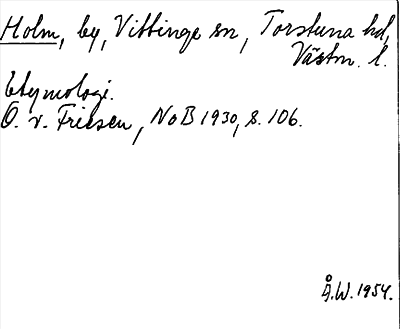 Holm, by, Vittinge sn, Torstuna hd,
Västm. l.
Etymologi.
O. v. Friesen, NoB 1930, s. 106.
Å.W. 1954.